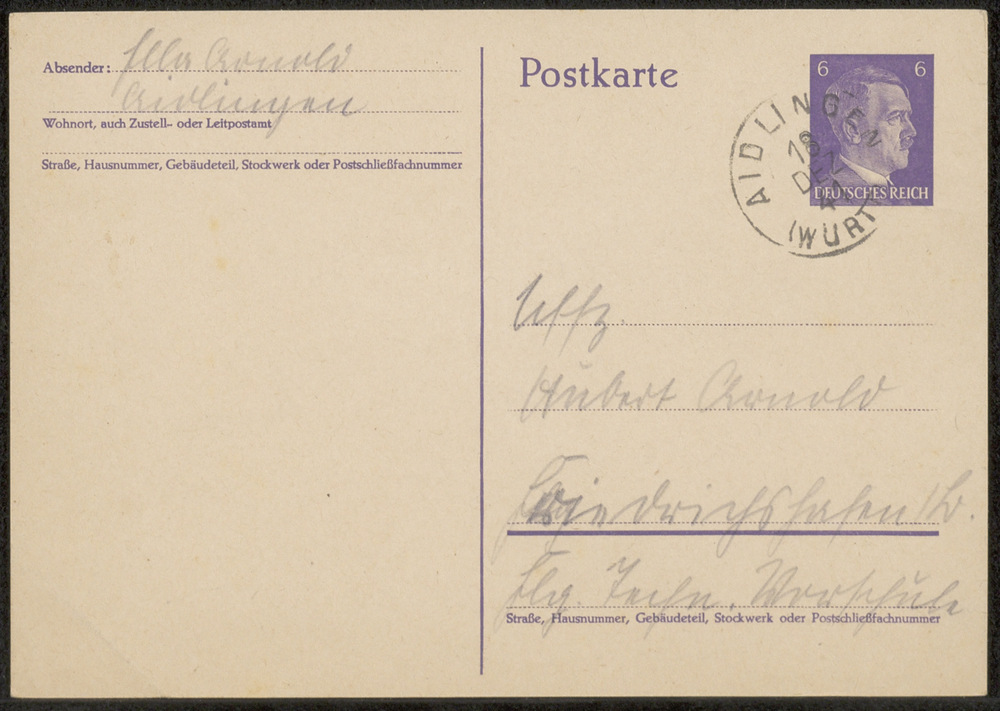 Absender: Ella Arnold
Aidlingen
Wohnort, auch Zustell- oder Leitpostamt
Straße, Hausnummer, Gebäudeteil, Stockwerk oder Postschließfachnummer
Postkarte
6 6
DEUTSCHES REICH
AIDLINGEN
DEZ
(WÜRTT
Uffz.
Hubert Arnold
Friedrichshafen/B.
Flg. Techn. Vorschule
Straße, Hausnummer, Gebäudeteil, Stockwerk oder Postschließfachnummer